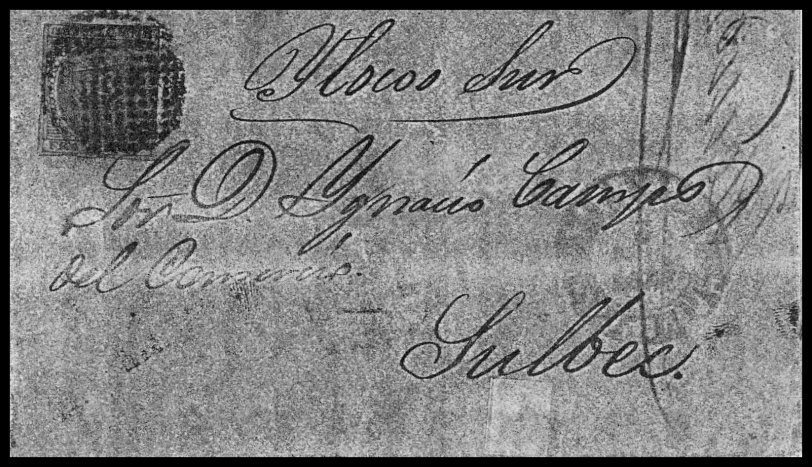 Ylocos Sur
Sor. D. Ygnacio Camps
del Comercio.
Sulbec.